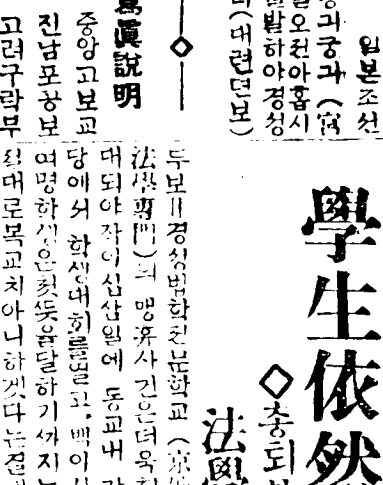 일본조선
궁과궁과 (宮
일오전아홉시
발하야경성
(대련뎐보)
寫眞說明
중앙고보교
진남포공보
고려구락부
學生依然
◇총되
法學
두보=경성법학전문학교 (京城
法學專門)의 맹휴사건은더욱
대되야작이십삼일에 동교내 강
당에서 학생대회를열고, 백이십
여명학생은첫뜻을달하기까지는
절대로복교치아니하겟다는결